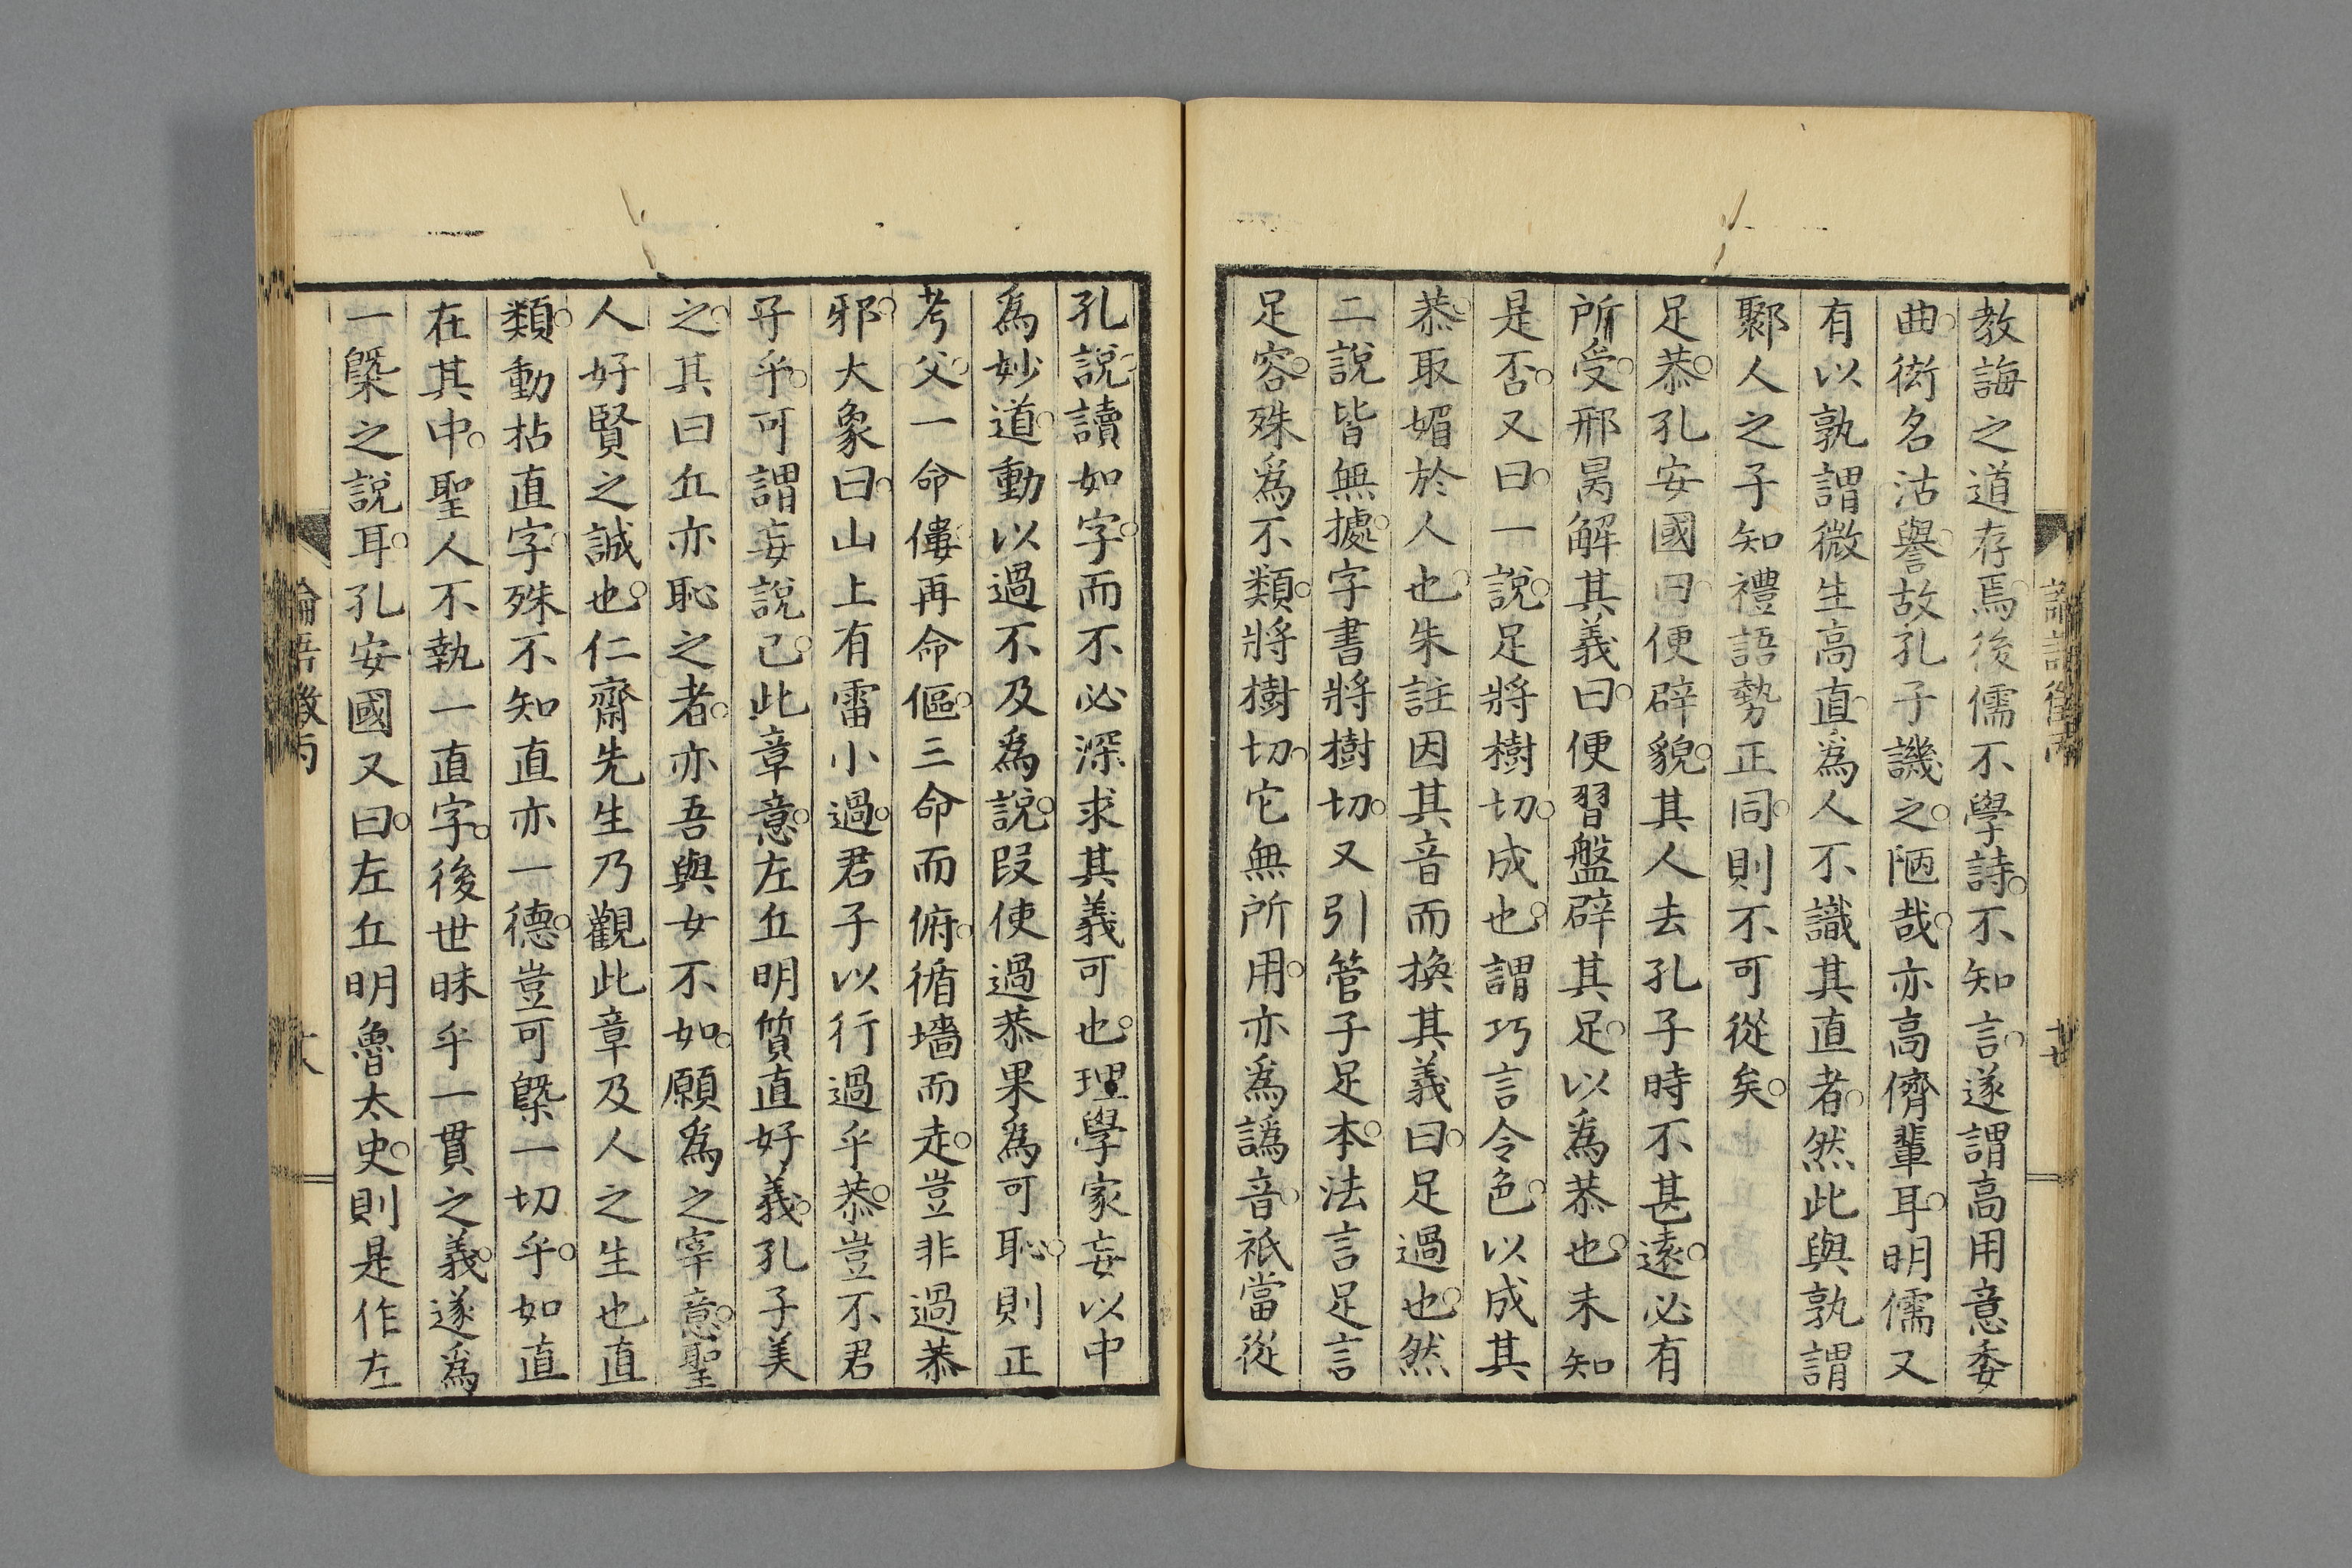 教誨之道存焉後儒不學詩不知言遂謂高用意委
曲衒名沽譽故孔子譏之陋哉亦高儕輩耳明儒又
有以孰謂微生高直為人不識其直者然此與孰謂
鄹人之子知禮語勢正同則不可從矣
足恭孔安國曰便辟貌其人去孔子時不甚遠必有
所受邢昺解其義曰便習盤辟其足以為恭也未知
是否又曰一說足將樹切成也謂巧言令色以成其
恭取媚於人也朱註因其音而換其義曰足過也然
二說皆無據字書將樹切又引管子足本法言足言
足容殊為不類將樹切它無所用亦為譌音祇當從
孔說讀如字而不必深求其義可也理學家妄以中
為妙道動以過不及為說叚使過恭果為可恥則正
考父一命僂再命傴三命而俯循墻而走豈非過恭
邪大象曰山上有雷小過君子以行過乎恭豈不君
子乎可謂妄說已此章意左丘明質直好義孔子美
之其曰丘亦恥之者亦吾與女不如願為之宰意聖
人好賢之誠也仁齋先生乃觀此章及人之生也直
類動拈直字殊不知直亦一德豈可槩一切乎如直
在其中聖人不執一直字後世昧乎一貫之義遂為
一槩之說耳孔安國又曰左丘明魯太史則是作左
論語徵丙